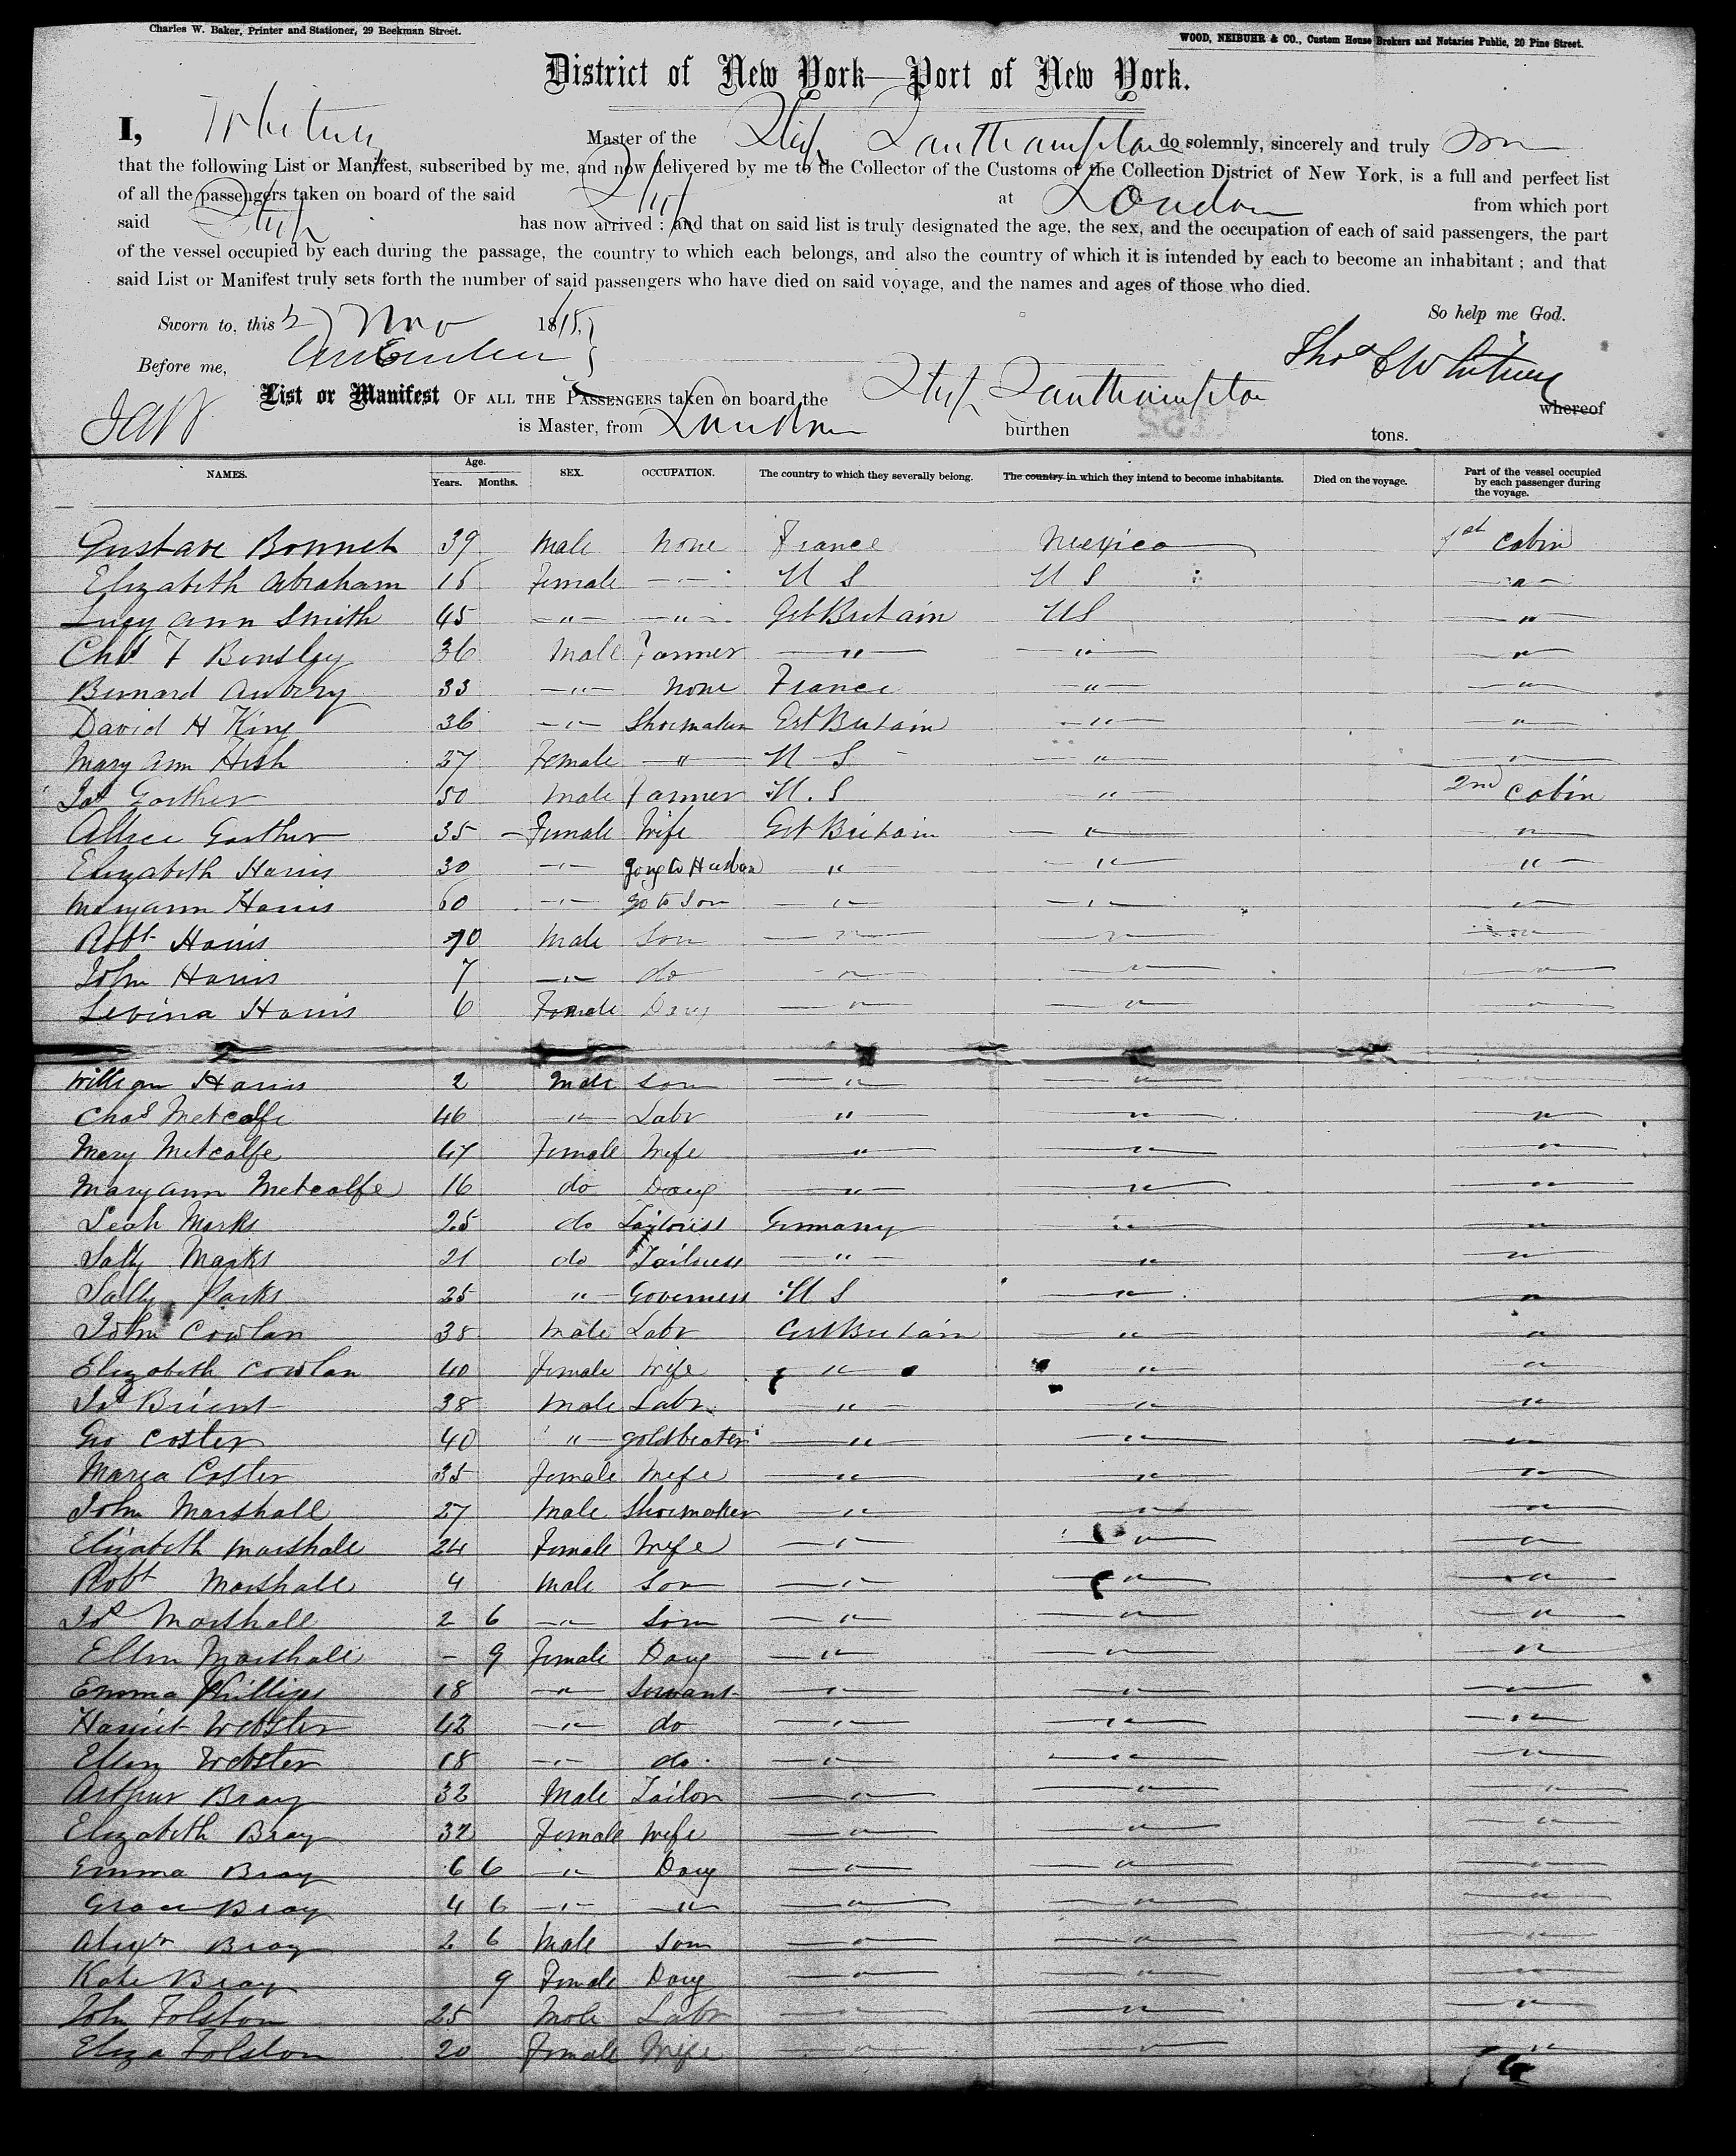 Charles W. Baker, Printer and Stationer, 29 Beekman Street.
WOOD, NEIBUHR & CO., Custom House Brokers and Notaries Public, 20 Pine Street.
District of New York—Port of New York.
I, Whitney Master of the Ship Southampton do solemnly, sincerely and truly
that the following List or Manifest, subscribed by me, and now delivered by me to the Collector of the Customs of the Collection District of New York, is a full and perfect list
of all the passengers taken on board of the said Ship at London from which port
said Ship has now arrived; and that on said list is truly designated the age, the sex, and the occupation of each of said passengers, the part
of the vessel occupied by each during the passage, the country to which each belongs, and also the country of which it is intended by each to become an inhabitant; and that
said List or Manifest truly sets forth the number of said passengers who have died on said voyage, and the names and ages of those who died.
So help me God.
Sworn to, this Nov 18
Thos C Whitney
Before me,
List or Manifest OF ALL THE PASSENGERS taken on board the Ship Southampton whereof
is Master, from London burthen tons.
NAMES. Age. Years. Months. SEX. OCCUPATION. The country to which they severally belong. The country in which they intend to become inhabitants. Died on the voyage. Part of the vessel occupied by each passenger during the voyage.
Gustave Bonnet 39 Male None France Mexico 1st Cabin
Elizabeth Abraham Female -"- U S U S -"-
Lucy Ann Smith 45 -"- -"- Grt Britain US "
Chas F Bensley 36 Male Farmer " " "
Bernard 33 -"- None France " "
David H King 36 -"- Shoemaker Grt Britain " "
Mary Ann Hish 37 Female " U S " "
Jas Garther 50 Male Farmer U.S " 2nd Cabin
Allice Garther 35 Female Wife Grt Britain " "
Elizabeth Harris 30 -"- going to Husban " " "
Maryann Harris 60 -"- go to Son " " "
Robt Harris 10 Male Son " " "
John Harris 7 -"- do " " "
Levina Harris 6 Female Daug " " "
William Harris 2 Male Son " " "
Chas Metcalfe 46 -"- Labr " " "
Mary Metcalfe 47 Female Wife " " "
Maryann Metcalfe 16 do Daug " " "
Leah Marks 25 do Tailoriss Germany " "
Sally Marks 21 do Tailoress " " "
Sally Jacks 25 " Governess U S " "
John Cowlan 38 Male Labr Grt Britain " "
Elizabeth Cowlan 40 Female Wife " " "
Jas Brient 38 Male Labr " " "
Geo Coster 40 " goldbeater " " "
Maria Coster 35 Female Wife " " "
John Marshall 27 Male Shoemaker " " "
Elizabeth Marshall 24 Female Wife " " "
Robt Marshall 4 Male Son " " "
Jas Marshall 2 6 -"- Son " " "
Ellen Marshall - 9 Female Daug " " "
Emma Phillips 18 -"- Servant " " "
Harriet Webster 42 -"- do " " "
Ellen Webster 18 -"- do " " "
Arthur Bray 32 Male Tailor " " "
Elizabeth Bray 32 Female Wife " " "
Emma Bray 6 6 -"- Daug " " "
Grace Bray 4 6 -"- -"- " " "
Alexr Bray 2 6 Male Son " " "
Kate Bray 9 Female Daug " " "
John Folston 25 Male Labr " " "
Eliza Folston 20 Female Wife " " "